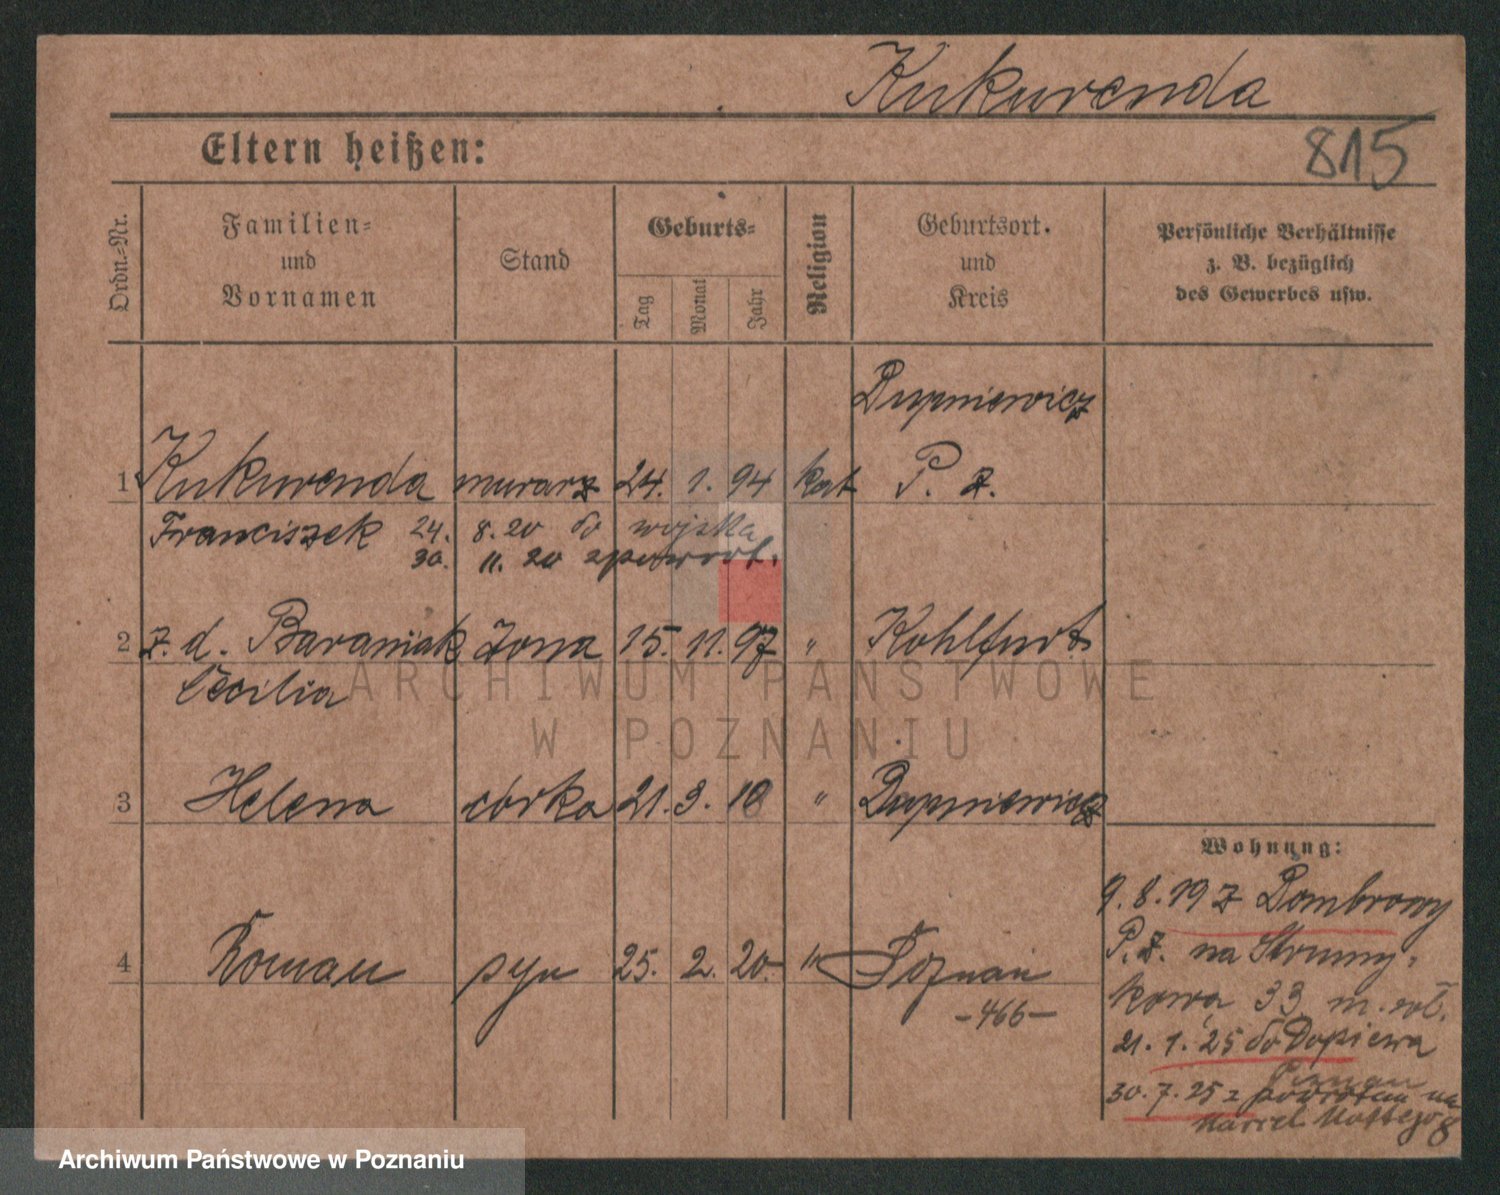 Kukurenda
815
Eltern heißen:
Ordn.-Nr.
Familien-
und
Vornamen
Stand
Geburts-
Tag
Monat
Jahr
Religion
Geburtsort.
und
Kreis
Persönliche Verhältnisse
z. B. bezüglich
des Gewerbes usw.
Dupniewicz
1 Kukurenda murarz 24. 1. 94 kat P. Z.
Franciszek 24. 8. 20 do wojska
30. 11. 20 zpowrot.
2 z. d. Baraniak żona 15. 11. 97 " Kohlfurt
Cecilia
3 Helena córka 21. 3. 18 " Dupniewicz
4 Roman syn 25. 2. 20 " Poznań
-466-
Wohnung:
9. 8. 19 z Dombrowy
P. Z. na Strumy-
kowa 33 m. rob.
21. 1. 25 do Dopiewa
Poznań
30. 7. 25 z powrotem na
8
ARCHIWUM PAŃSTWOWE
W POZNANIU
Archiwum Państwowe w Poznaniu